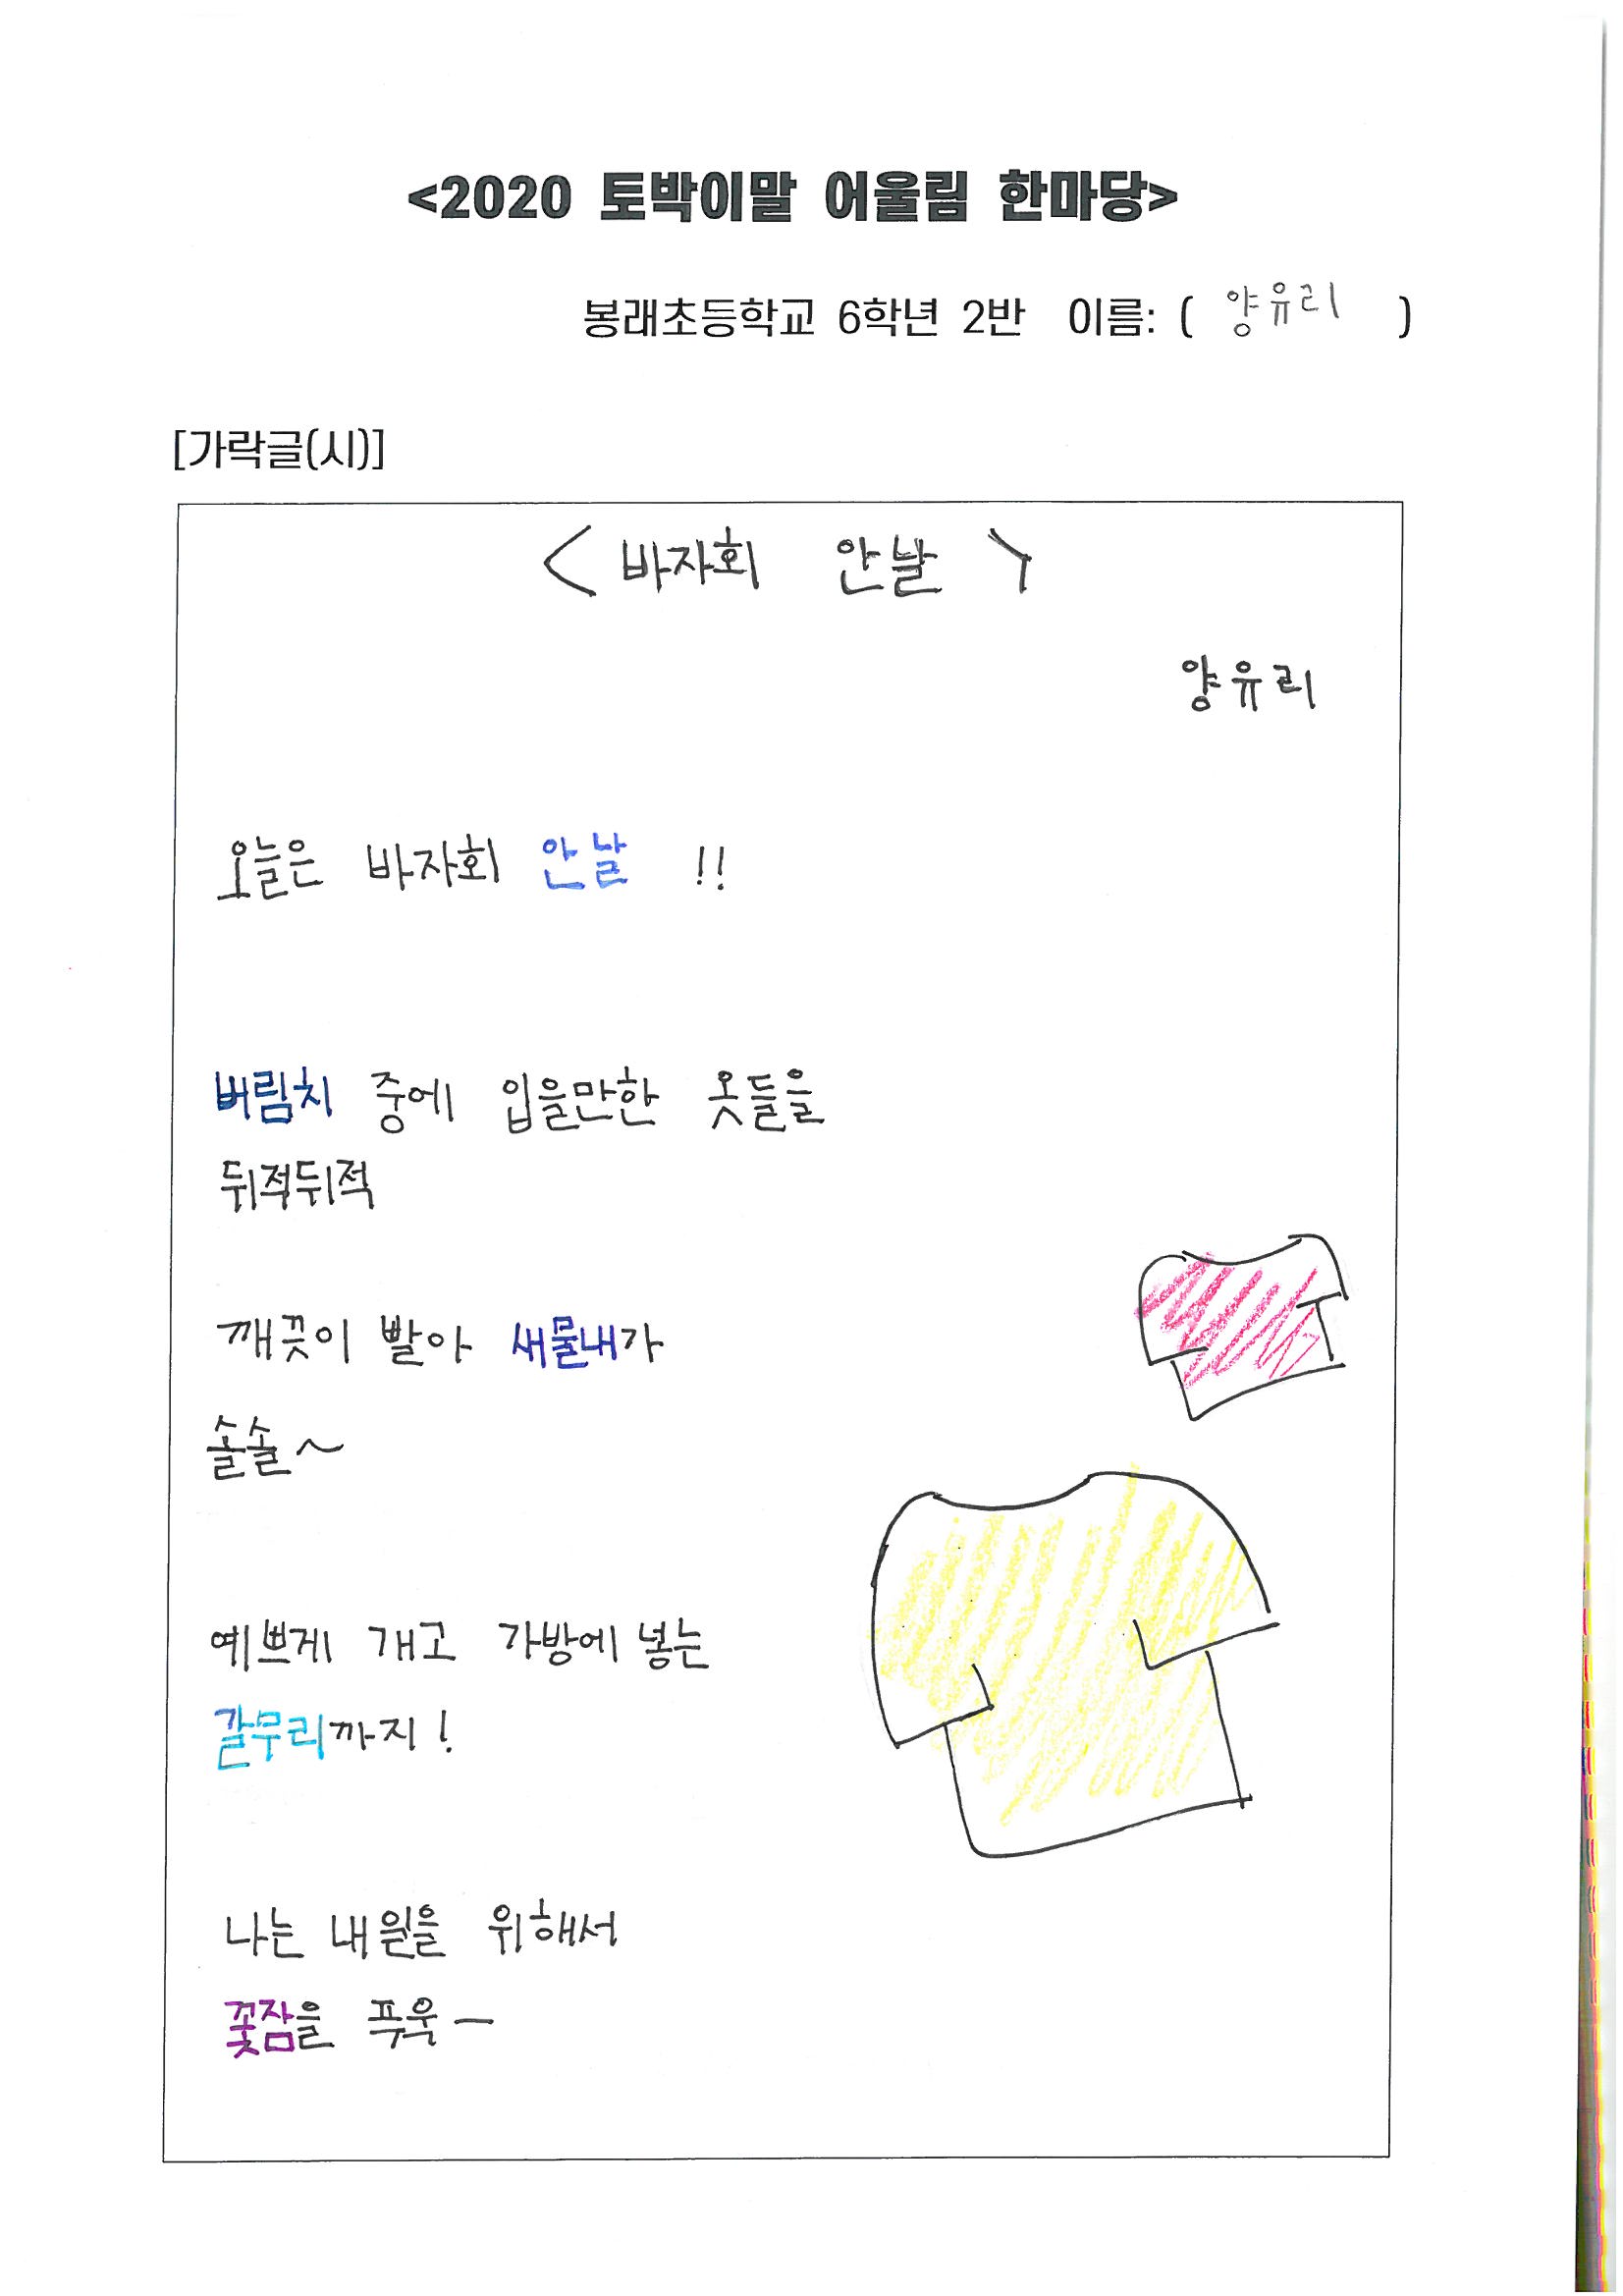 <2020 토박이말 어울림 한마당>
봉래초등학교 6학년 2반 이름: ( 양유리 )
[가락글(시)]
< 바자회 안날 >
양유리
오늘은 바자회 안날 !!
버림치 중에 입을만한 옷들을
뒤적뒤적
깨끗이 빨아 새물내가
솔솔~
예쁘게 개고 가방에 넣는
갈무리까지!
나는 내일을 위해서
꽃잠을 푸욱-